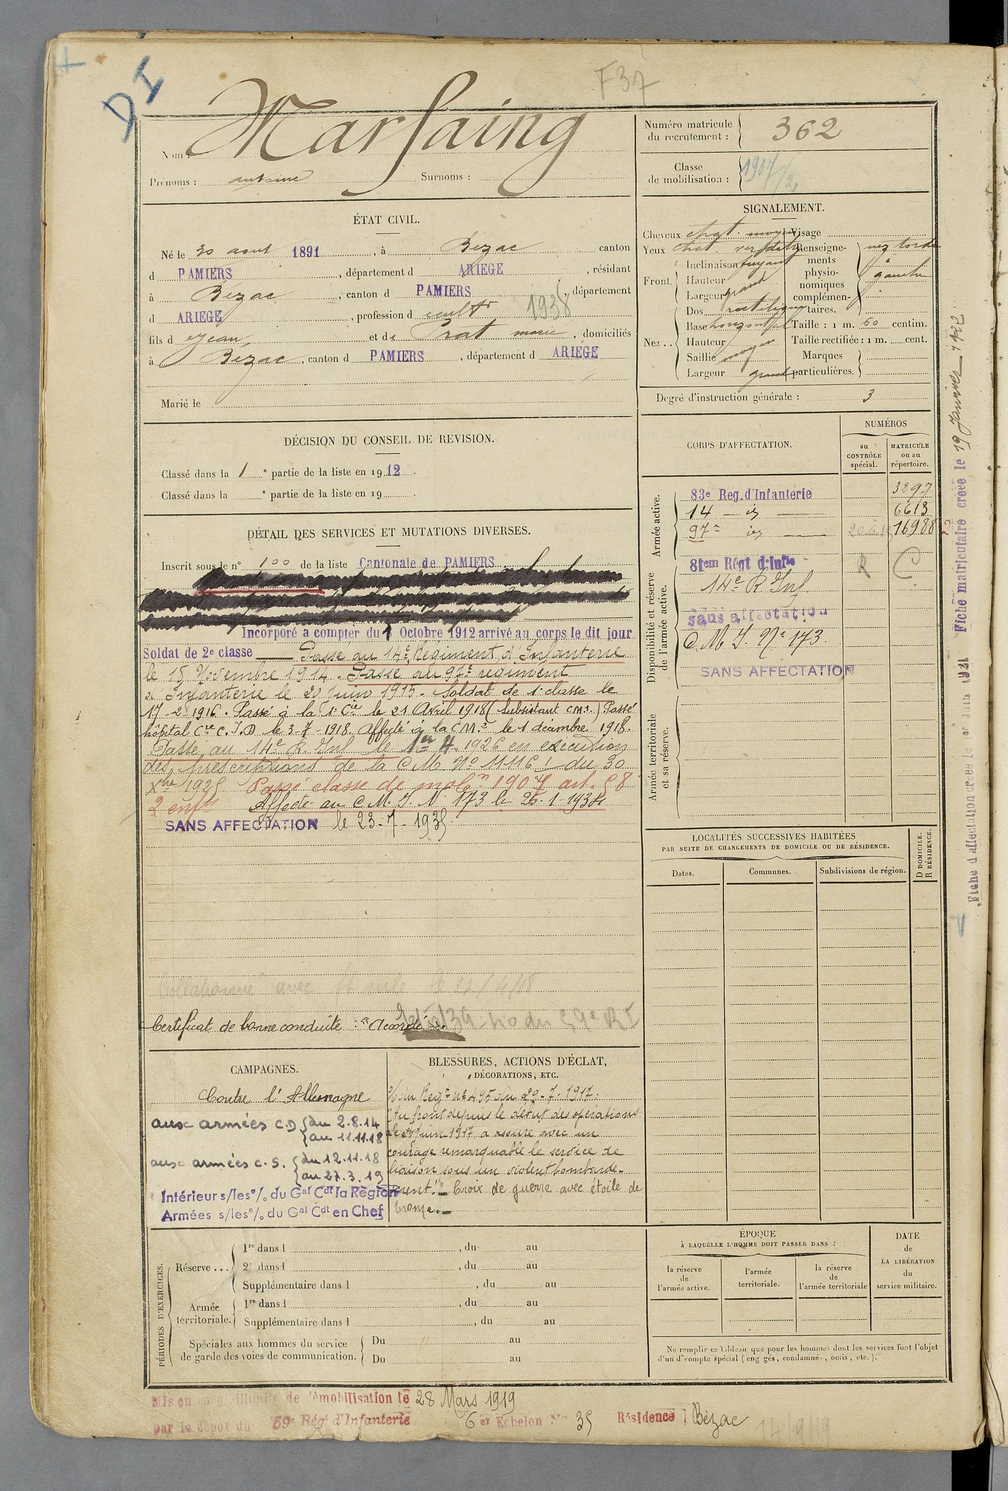 DI
F37
Nom Marfaing
Prénoms : antoine Surnoms :
Numéro matricule du recrutement : 362
Classe de mobilisation : 1907/2
ÉTAT CIVIL.
Né le 30 aout 1891, à Bezac canton
d PAMIERS, département d ARIEGE, résidant
à Bezac, canton d PAMIERS, département
d ARIEGE, profession de cultr 1938
fils d e Jean et de Prat marie, domiciliés
à Bezac, canton d PAMIERS, département d ARIEGE
Marié le
SIGNALEMENT.
Cheveux chat. moy Visage
Yeux chat. verdatre
Renseignements physionomiques complémentaires. nez tordu à gauche
Front. Inclinaison fuyant
Hauteur
Largeur grand
Nez .. Dos rectiligne
Base horizontal Taille : 1 m. 60 centim.
Hauteur Taille rectifiée : 1 m. cent.
Saillie moyen Marques particulières.
Largeur grand
Degré d'instruction générale : 3
DÉCISION DU CONSEIL DE REVISION.
Classé dans la 1e partie de la liste en 1912
Classé dans la e partie de la liste en 19
DÉTAIL DES SERVICES ET MUTATIONS DIVERSES.
Inscrit sous le n° 100 de la liste Cantonale de PAMIERS
Incorporé à compter du 1 Octobre 1912 arrivé au corps le dit jour
Soldat de 2e classe Passé au 14e Régiment d'Infanterie
le 18 Novembre 1914. Passé au 97e régiment
d'Infanterie le 20 Juin 1915. Soldat de 1e classe le
17-2-1916. Passé à la 1e Cie le 21 Avril 1918 (subsistant C.M.3.) Passé
hôpital Cie C.I.D le 3-7-1918. Affecté à la C.M.3 le 1 décembre 1918.
Passé au 14e R. Inf le 1er 4. 1926 en exécution
des prescriptions de la C.M. N° 11116 du 30
Xbre 1925 Passé classe de mobon 1907 art. 58
2 enfts Affecté au C.M.I. N° 173 le 26-1-1934
SANS AFFECTATION le 23-7-1935
Certificat de bonne conduite : "Accordé".
CORPS D'AFFECTATION.
NUMÉROS
au CONTRÔLE spécial.
MATRICULE ou au répertoire.
Armée active.
83e Reg. d'Infanterie 3297
14 — id — 6613
97e id — 16988
Disponibilité et réserve de l'armée active.
81em Régt d'Inf R C
14e R. Inf.
sans affectation
C M I. N° 173
SANS AFFECTATION
Armée territoriale et sa réserve.
LOCALITÉS SUCCESSIVES HABITÉES
PAR SUITE DE CHANGEMENTS DE DOMICILE OU DE RÉSIDENCE.
Dates. Communes. Subdivisions de région. D DOMICILE. R RÉSIDENCE.
CAMPAGNES.
Contre l'Allemagne
aux armées C.D { du 2.8.14
au 11.11.18
aux armées C.S. { du 12.11.18
au 27.3.19
Intérieur s/les o/. du Gal Cdt la Région
Armées s/les o/. du Gal Cdt en Chef
BLESSURES, ACTIONS D'ÉCLAT,
DÉCORATIONS, ETC.
O/ du Régt N° 495 du 29-7-1917 :
"Au front depuis le début des opérations
juin 1917 a assuré avec un
courage remarquable le service de
liaison sous un violent bombarde-
ment." Croix de guerre avec étoile de
bronze.
PÉRIODES D'EXERCICES.
Réserve ... 1re dans l , du au
2e dans l , du au
Supplémentaire dans l , du au
Armée territoriale. 1re dans l , du au
Supplémentaire dans l , du au
Spéciales aux hommes du service de garde des voies de communication. Du au
Du au
ÉPOQUE
À LAQUELLE L'HOMME DOIT PASSER DANS :
la réserve de l'armée active.
l'armée territoriale.
la réserve de l'armée territoriale
DATE de LA LIBÉRATION du service militaire.
Ne remplir ce tableau que pour les hommes dont les services font l'objet
d'un décompte spécial (engagés, condamnés, omis, etc.).
Mis en congé illimité de démobilisation le 28 Mars 1919
par le dépôt du 59e Rég' d'Infanterie 6er Echelon N° 35 Résidence : Bézac
Fiche matriculaire créée le 19 Janvier